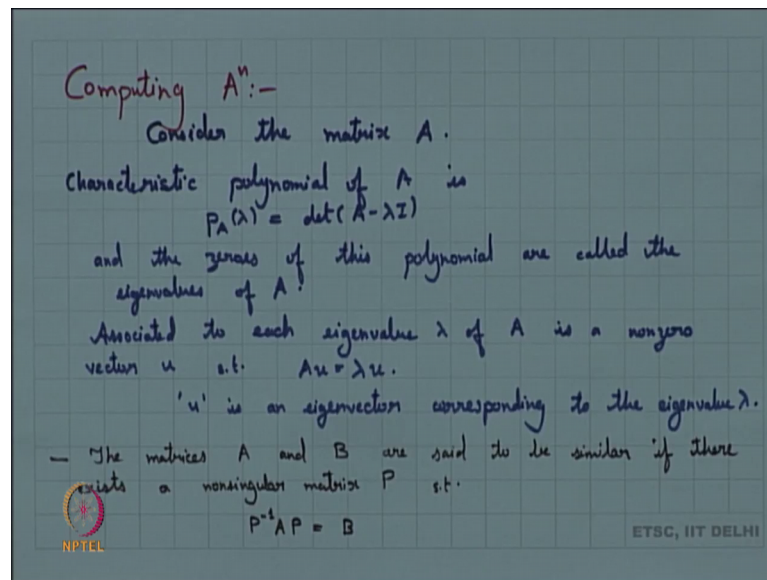 Computing Aⁿ:-
Consider the matrix A.
Characteristic polynomial of A is
P_A(λ) = det(A-λI)
and the zeroes of this polynomial are called the
eigenvalues of A.
Associated to each eigenvalue λ of A is a nonzero
vector u s.t. Au = λu.
'u' is an eigenvector corresponding to the eigenvalue λ.
— The matrices A and B are said to be similar if there
exists a nonsingular matrix P s.t.
P⁻¹AP = B
NPTEL
ETSC, IIT DELHI